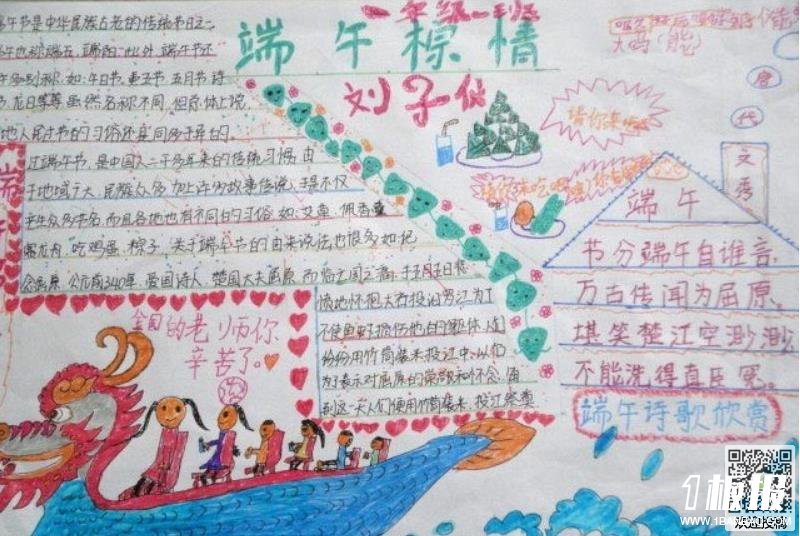 一年级一班
端午棕情
刘子
午节是中华民族古老的传统节日之一
午也称端五,端阳.此外,端午节还
许多别称,如:午日节.重五节.五月节.诗
节.龙日等等.虽然名称不同,但总体上说,
地人民过节的习俗还是同多于异的.
过端午节,是中国人二千多年来的传统习惯,由
于地域广大.民族众多.加上许多故事传说,于是不仅
产生众多节名,而且各地也有不同的习俗.如:艾草.佩香囊
吃鸡蛋.粽子.关于端午节的由来说法也很多.如:纪
念屈原.公元前340年.爱国诗人.楚国大夫屈原.面临亡国之痛,于五月五日
愤地怀抱大石投汨罗江.为了
不使鱼虾损伤他的躯体,人们
纷纷用竹筒装米投江中.以
为了表示对屈原的崇敬和怀念.
到这一天人们便用竹筒装米,投江祭奠
端
全国的老师你
辛苦了。
请你来吃
请你来吃吧
唐代
文秀
端午
节分端午自谁言,
万古传闻为屈原。
堪笑楚江空渺渺
不能洗得直臣冤。
端午诗歌欣赏
1板报
WWW.1BANBAO.COM
欢迎投稿